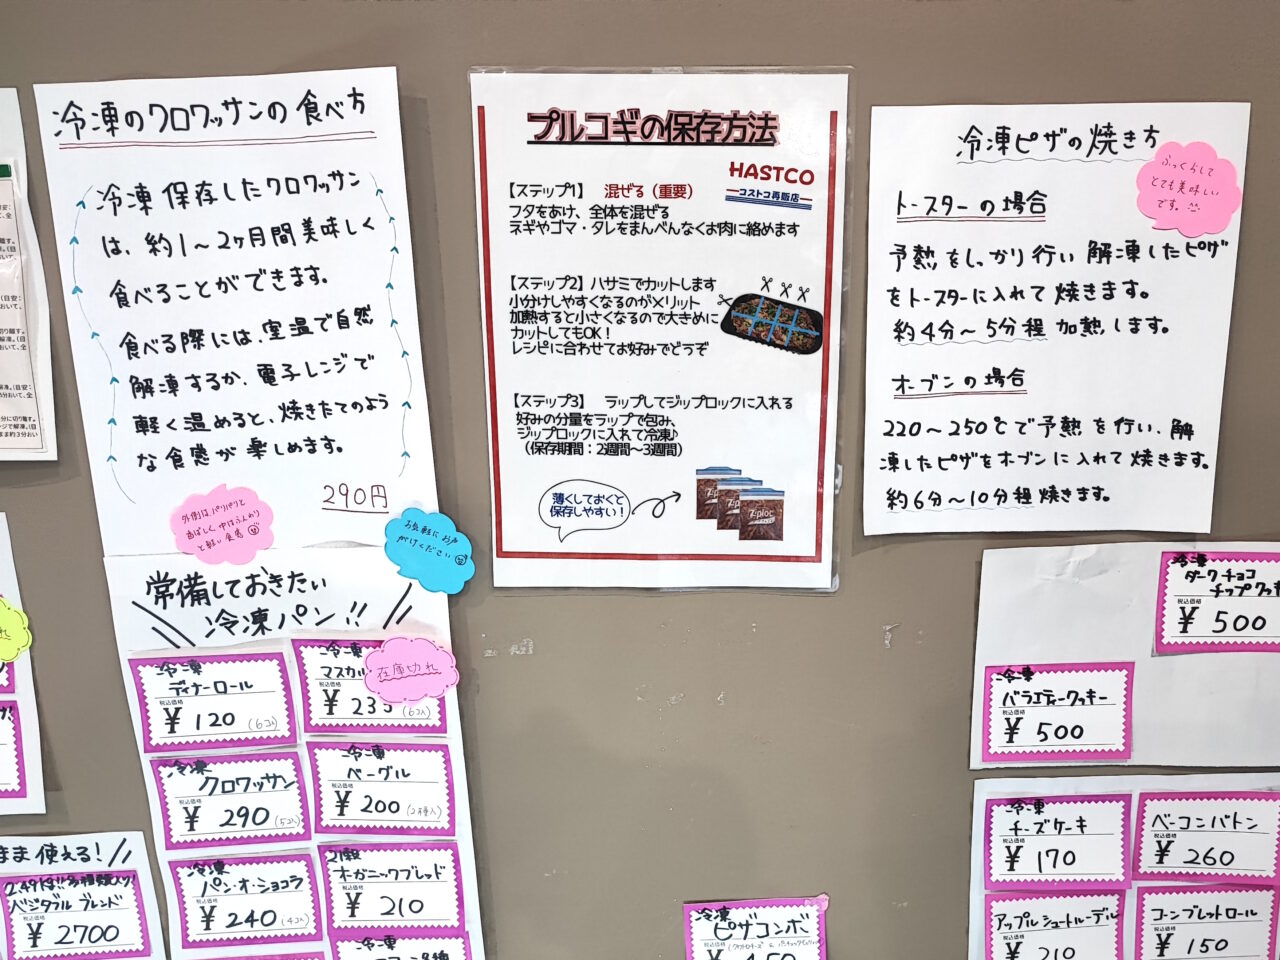 冷凍のクロワッサンの食べ方
冷凍保存したクロワッサン
は、約1～2ヶ月間美味しく
食べることができます。
食べる際には、室温で自然
解凍するか、電子レンジで
軽く温めると、焼きたてのよう
な食感が楽しめます。
290円
外側は、パリパリと
香ばしく、中はふんわり
と軽い食感
お気軽にお声
がけください
常備しておきたい
冷凍パン!!
冷凍
ディナーロール
税込価格
¥120(6コ入)
冷凍
マスカル
在庫切れ
税込価格
¥235(6コ入)
冷凍
クロワッサン
税込価格
¥290(5コ入)
冷凍
ベーグル
税込価格
¥200(2種入)
冷凍
パン・オ・ショコラ
税込価格
¥240(4コ入)
21穀
オーガニックブレッド
税込価格
¥210
冷凍
プルコギの保存方法
HASTCO
コストコ再販店
【ステップ1】 混ぜる(重要)
フタをあけ、全体を混ぜる
ネギやゴマ・タレをまんべんなくお肉に絡めます
【ステップ2】ハサミでカットします
小分けしやすくなるのがメリット
加熱すると小さくなるので大きめに
カットしてもOK!
レシピに合わせてお好みでどうぞ
【ステップ3】 ラップしてジップロックに入れる
好みの分量をラップで包み、
ジップロックに入れて冷凍♪
(保存期間:2週間～3週間)
薄くしておくと
保存しやすい!
Ziploc
冷凍ピザの焼き方
ふっくらして
とても美味しい
です。
トースターの場合
予熱をしっかり行い解凍したピザ
をトースターに入れて焼きます。
約4分～5分程加熱します。
オーブンの場合
220～250℃で予熱を行い、解
凍したピザをオーブンに入れて焼きます。
約6分～10分程焼きます。
冷凍
ダークチョコ
チップクッキ
税込価格
¥500
冷凍
バラエティークッキー
税込価格
¥500
冷凍
チーズケーキ
税込価格
¥170
ベーコンバトン
税込価格
¥260
アップルシュトルーデル
税込価格
¥210
コーンブレットロール
税込価格
¥150
冷凍
ピザコンボ
まま使える!
2.49kg!!多種類入り!
ベジタブルブレンド
税込価格
¥2700